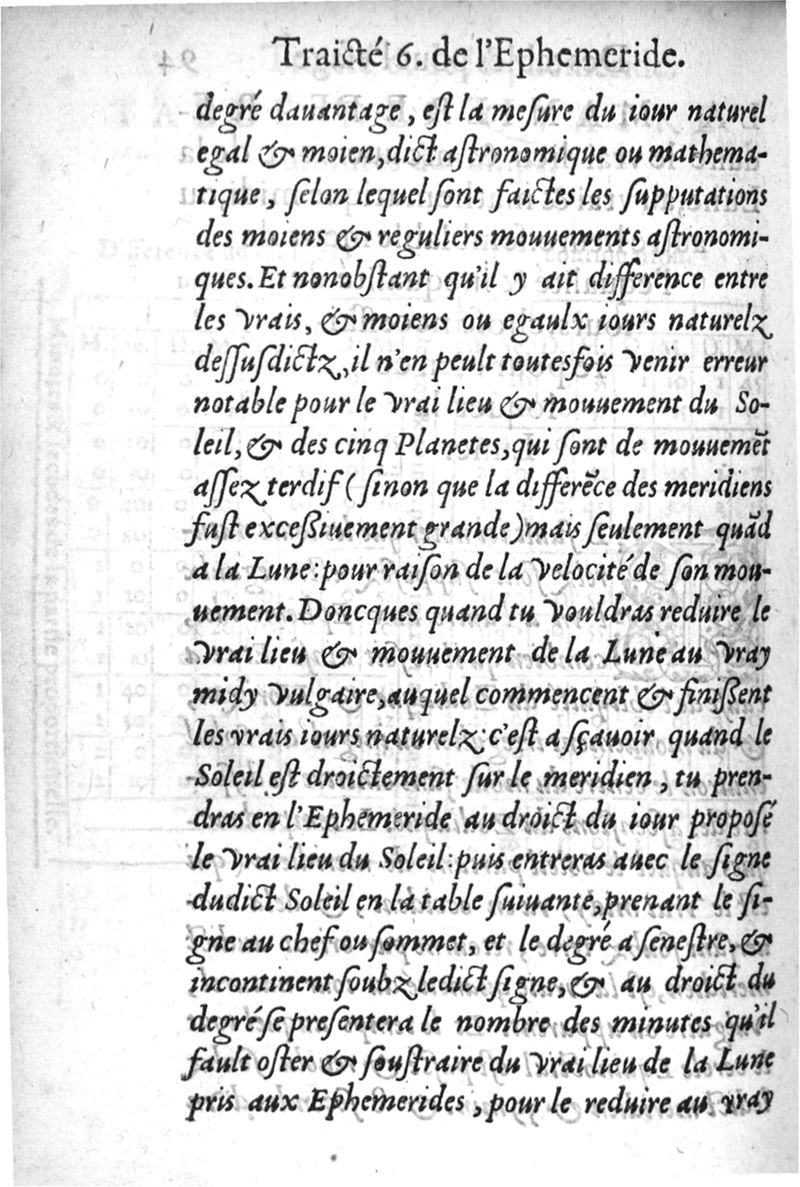 Traicté 6. de l'Ephemeride.
degré dauantage, est la mesure du iour naturel
egal & moien, dict astronomique ou mathema-
tique, selon lequel sont faictes les supputations
des moiens & reguliers mouuements astronomi-
ques. Et nonobstant qu'il y ait difference entre
les vrais, & moiens ou egaulx iours naturelz
dessusdictz, il n'en peult toutesfois venir erreur
notable pour le vrai lieu & mouuement du So-
leil, & des cinq Planetes, qui sont de mouuemẽt
assez terdif (sinon que la differẽce des meridiens
fust excessiuement grande) mais seulement quãd
a la Lune: pour raison de la velocité de son mou-
uement. Doncques quand tu vouldras reduire le
vrai lieu & mouuement de la Lune au vray
midy vulgaire, auquel commencent & finissent
les vrais iours naturelz: c'est a sçauoir quand le
Soleil est droictement sur le meridien, tu pren-
dras en l'Ephemeride au droict du iour proposé
le vrai lieu du Soleil: puis entreras auec le signe
dudict Soleil en la table suiuante, prenant le si-
gne au chef ou sommet, et le degré a senestre, &
incontinent soubz ledict signe, & au droict du
degré se presentera le nombre des minutes qu'il
fault oster & soustraire du vrai lieu de la Lune
pris aux Ephemerides, pour le reduire au vray